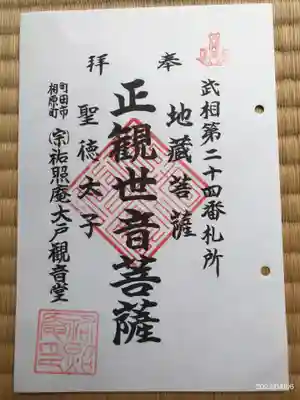 奉拝
武相第二十四番札所
地蔵菩薩
正観世音菩薩
聖徳太子
町田市
相原町
㊪祐照庵大戸観音堂